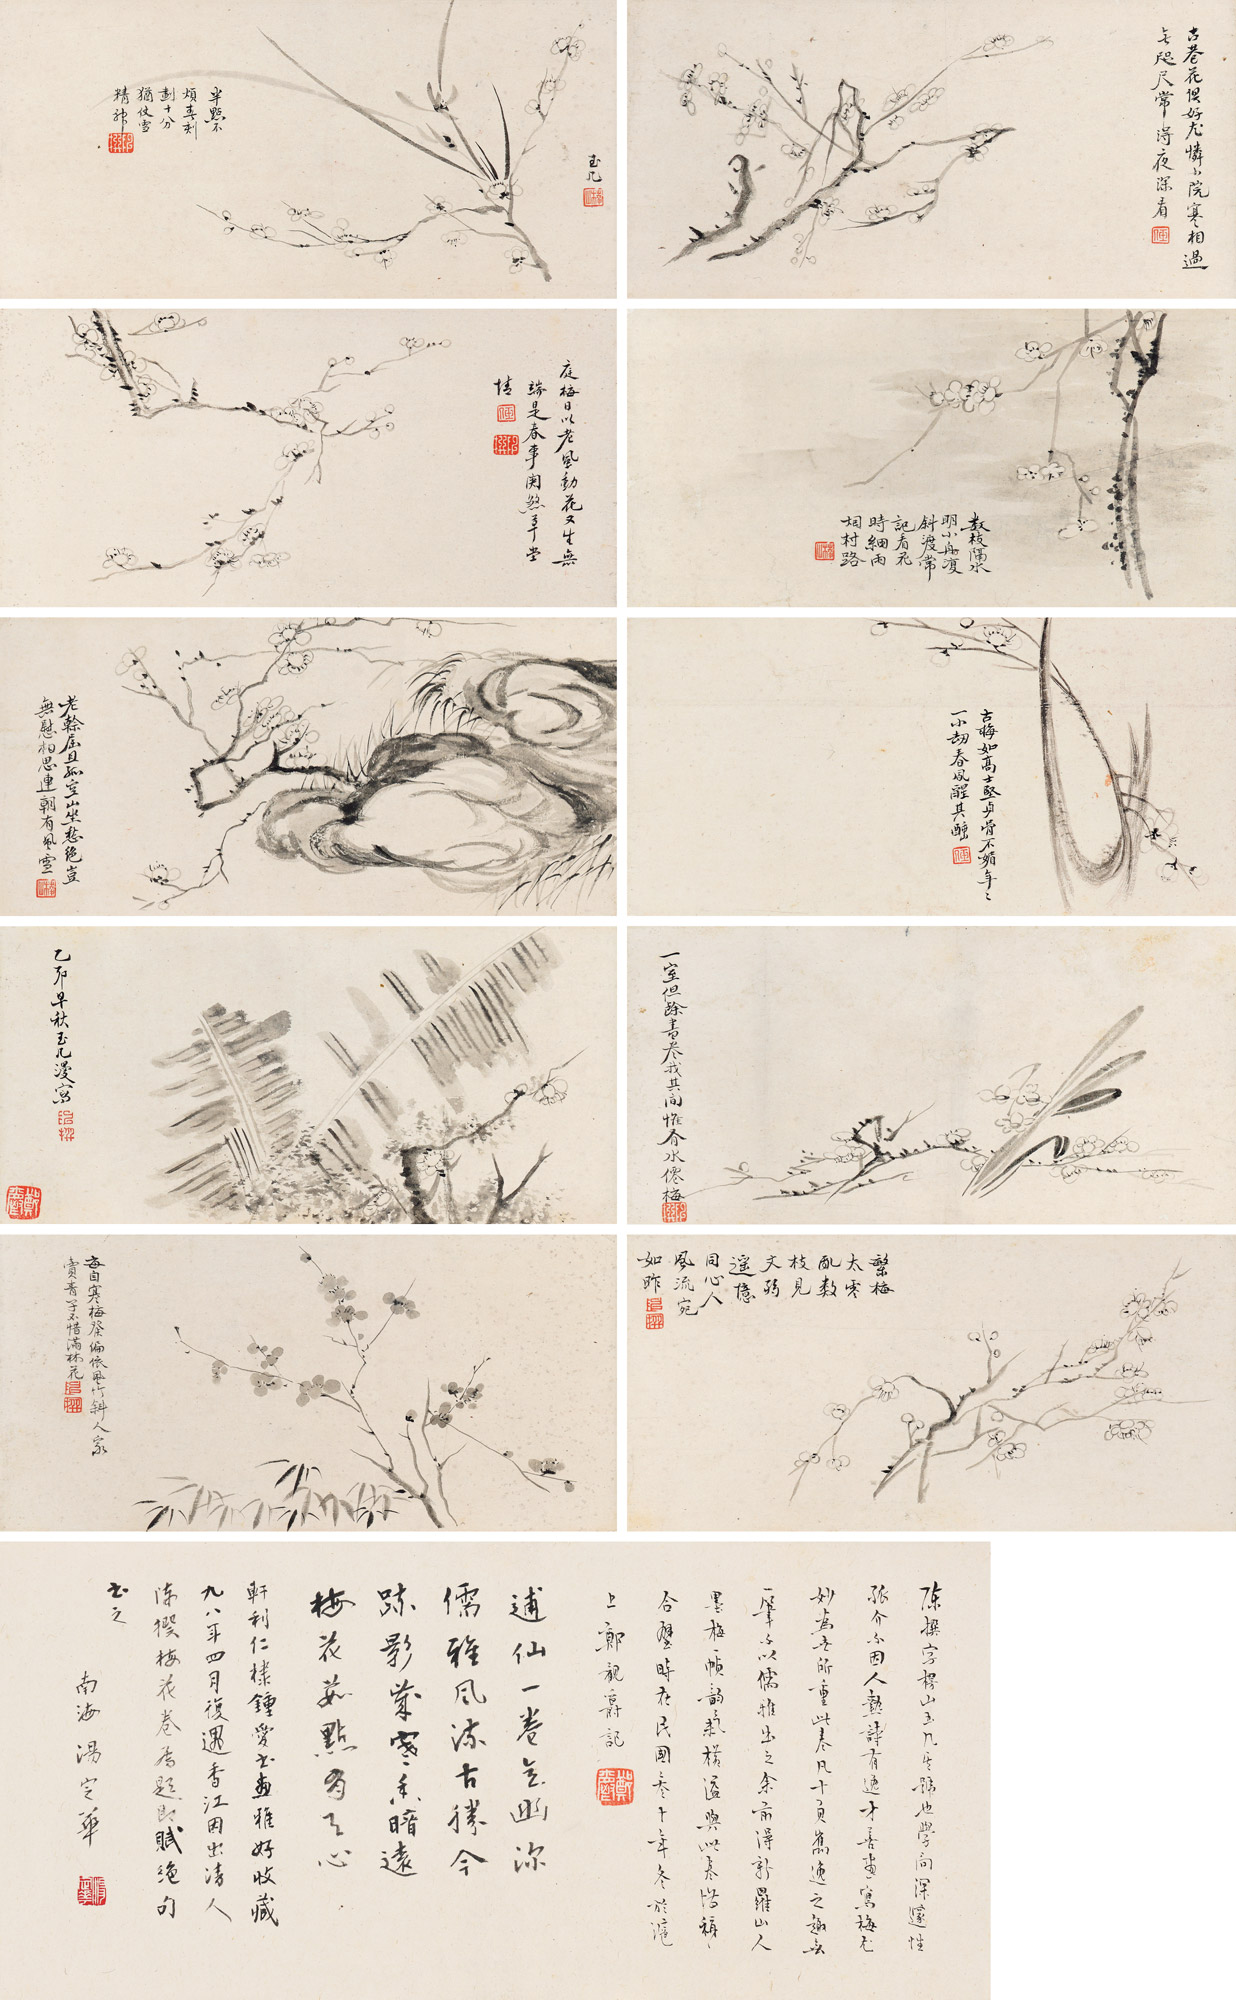 古巷花俱好尤憐小院寒相過
無咫尺常得夜深看
玉几
半點不
煩春刻
劃十分
猶仗雪
精神
數枝隔水
明小舟復
斜渡常
記看花
時細雨
烟村路
庭梅日以老風動花又生無
端是春事関愁草堂
情
古梅如高士堅貞骨不媚年〻
一小劫春風醒其醉
老幹屈且孤空山坐愁絶豈
無慰相思連朝有風雪
一室但餘書卷我其間惟介水僊梅
乙卯早秋玉几漫寫
繁梅
太零
亂數
枝見
文弱
遥憶
同心人
風流宛
如昨
每自寒梅發偏依風竹斜人家
賣青子不惜滿林花
陳撰字楞山玉几其號也學問深邃性
孤介不因人熱詩有逸才善畫寫梅尤
妙為世所重此卷凡十頁雋逸之趣無
一筆不以儒雅出之余前得新羅山人
墨梅一幀韵氣横溢與此卷堪稱
合璧時在民國卅十年冬於滬
上鄭親爵記
逋仙一卷意幽深
儒雅風流古勝今
踈影歲寒香暗遠
梅花茹點有天心
軒利仁棣鍾愛書畫雅好收藏
九八年四月復遇香江因出清人
陳撰梅花卷属題即賦絶句
書之
南海湯定華